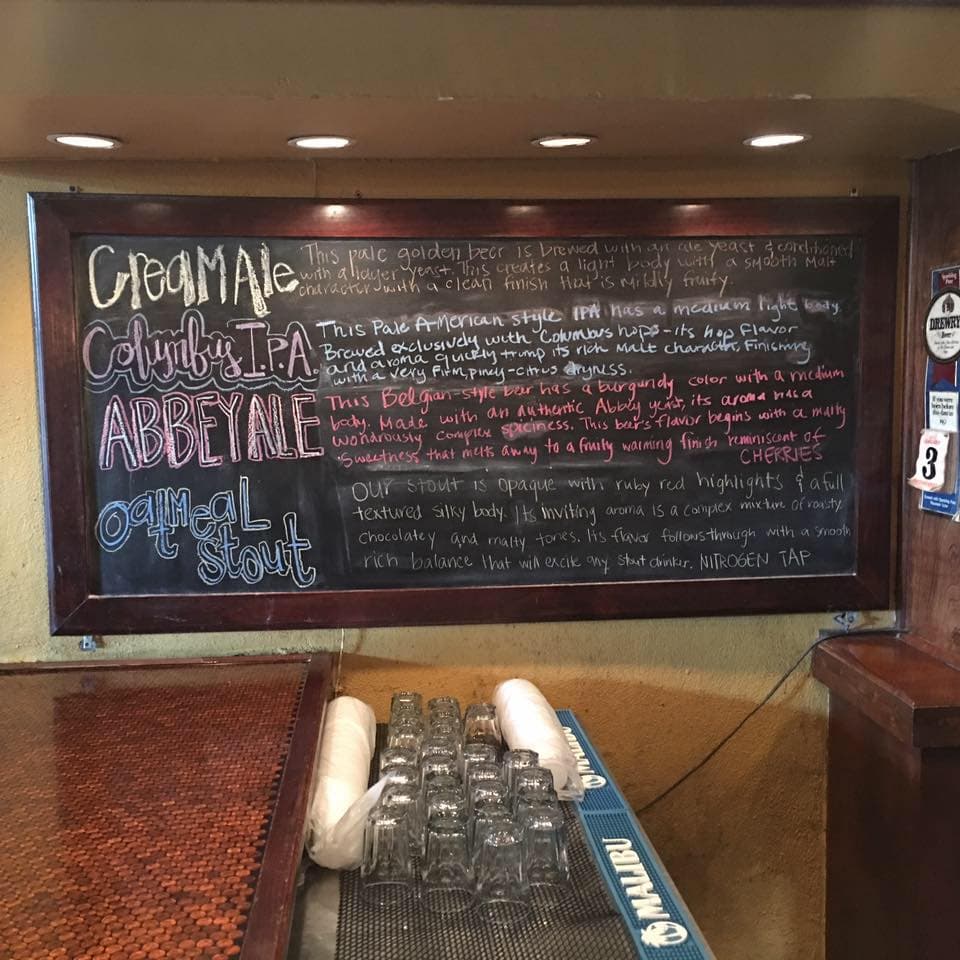 CreaM Ale
This pale golden beer is brewed with an ale yeast & conditioned
with a lager yeast. This creates a light body with a smooth malt
character with a clean finish that is mildly fruity.
Columbus I.P.A.
This Pale American style IPA has a medium light body.
Brewed exclusively with Columbus hops - its hop flavor
and aroma quickly trump its rich malt character, finishing
with a very firm, piney-citrus dryness.
ABBEY ALE
This Belgian-style beer has a burgundy color with a medium
body. Made with an authentic Abby yeast, its aroma has a
wondrously complex spiciness. This beers flavor begins with a malty
sweetness that melts away to a fruity warming finish reminiscent of
CHERRIES
Oatmeal
stout
Our stout is opaque with ruby red highlights & a full
textured silky body. Its inviting aroma is a complex mixture of roasty
chocolatey and malty tones. Its flavor follows through with a smooth
rich balance that will excite any stout drinker. NITROGEN TAP
DREWRYS
Beer
If you were
born before
this date in
3
MALIBU
MALIBU